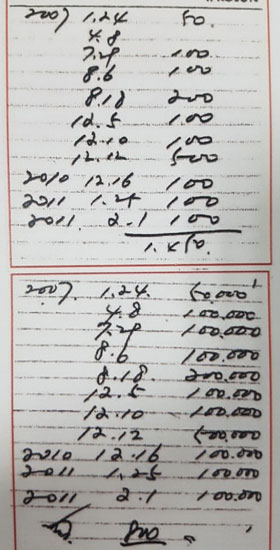 2007 1.24 50.
4.8
7.28 100
8.6 100
8.18 200
12.5 100
12.10 100
12.12 500
2010 12.16 100
2011 1.25 100
2011 2.1 100
1.450.
2007. 1.24. 50.000
4.8 100.000
7.28 100.000
8.6 100.000
8.18. 200.000
12.5 100.000
12.10 100.000
12.12 500.000
2010 12.16 100.000
2011 1.25 100.000
2011 2.1 100.000
800